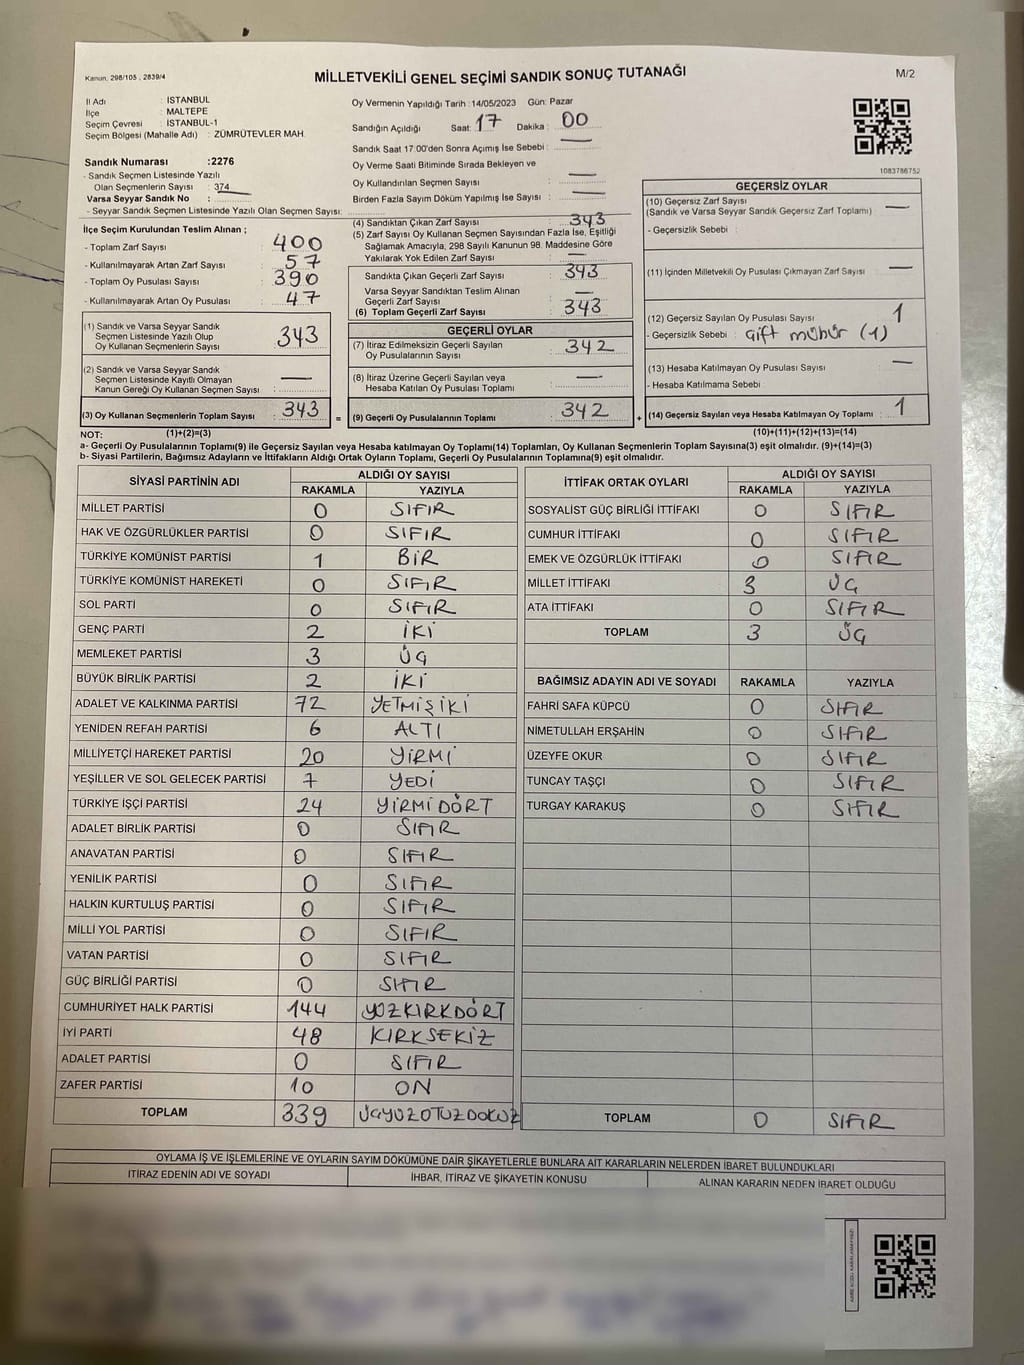 Kanun, 298/105 , 2839/4
MİLLETVEKİLİ GENEL SEÇİMİ SANDIK SONUÇ TUTANAĞI
M/2
İl Adı : İSTANBUL
İlçe : MALTEPE
Seçim Çevresi : İSTANBUL-1
Seçim Bölgesi (Mahalle Adı) : ZÜMRÜTEVLER MAH.
Sandık Numarası :2276
- Sandık Seçmen Listesinde Yazılı
Olan Seçmenlerin Sayısı : 374
Varsa Seyyar Sandık No :
- Seyyar Sandık Seçmen Listesinde Yazılı Olan Seçmen Sayısı:
Oy Vermenin Yapıldığı Tarih :14/05/2023 Gün: Pazar
Sandığın Açıldığı Saat: 17 Dakika : 00
Sandık Saat 17:00'den Sonra Açımış İse Sebebi : —
Oy Verme Saati Bitiminde Sırada Bekleyen ve
Oy Kullandırılan Seçmen Sayısı : —
Birden Fazla Sayım Döküm Yapılmış İse Sayısı : —
1083786752
İlçe Seçim Kurulundan Teslim Alınan ;
- Toplam Zarf Sayısı : 400
- Kullanılmayarak Artan Zarf Sayısı : 57
- Toplam Oy Pusulası Sayısı : 390
- Kullanılmayarak Artan Oy Pusulası : 47
(1) Sandık ve Varsa Seyyar Sandık
Seçmen Listesinde Yazılı Olup
Oy Kullanan Seçmenlerin Sayısı : 343
(2) Sandık ve Varsa Seyyar Sandık
Seçmen Listesinde Kayıtlı Olmayan
Kanun Gereği Oy Kullanan Seçmen Sayısı : —
(3) Oy Kullanan Seçmenlerin Toplam Sayısı : 343
(4) Sandıktan Çıkan Zarf Sayısı : 343
(5) Zarf Sayısı Oy Kullanan Seçmen Sayısından Fazla İse, Eşitliği
Sağlamak Amacıyla, 298 Sayılı Kanunun 98. Maddesine Göre
Yakılarak Yok Edilen Zarf Sayısı : —
Sandıkta Çıkan Geçerli Zarf Sayısı : 343
Varsa Seyyar Sandıktan Teslim Alınan
Geçerli Zarf Sayısı : —
(6) Toplam Geçerli Zarf Sayısı : 343
GEÇERLİ OYLAR
(7) İtiraz Edilmeksizin Geçerli Sayılan
Oy Pusulalarının Sayısı : 342
(8) İtiraz Üzerine Geçerli Sayılan veya
Hesaba Katılan Oy Pusulası Toplamı : —
= (9) Geçerli Oy Pusulalarının Toplamı : 342
GEÇERSİZ OYLAR
(10) Geçersiz Zarf Sayısı
(Sandık ve Varsa Seyyar Sandık Geçersiz Zarf Toplamı) : —
- Geçersizlik Sebebi :
(11) İçinden Milletvekili Oy Pusulası Çıkmayan Zarf Sayısı : —
(12) Geçersiz Sayılan Oy Pusulası Sayısı : 1
- Geçersizlik Sebebi : Çift mühür (1)
(13) Hesaba Katılmayan Oy Pusulası Sayısı : —
- Hesaba Katılmama Sebebi :
+ (14) Geçersiz Sayılan veya Hesaba Katılmayan Oy Toplamı : 1
NOT: (1)+(2)=(3)
(10)+(11)+(12)+(13)=(14)
a- Geçerli Oy Pusulalarının Toplamı(9) ile Geçersiz Sayılan veya Hesaba katılmayan Oy Toplamı(14) Toplamları, Oy Kullanan Seçmenlerin Toplam Sayısına(3) eşit olmalıdır. (9)+(14)=(3)
b- Siyasi Partilerin, Bağımsız Adayların ve İttifakların Aldığı Ortak Oyların Toplamı, Geçerli Oy Pusulalarının Toplamına(9) eşit olmalıdır.
SİYASİ PARTİNİN ADI ALDIĞI OY SAYISI
RAKAMLA YAZIYLA
MİLLET PARTİSİ 0 SIFIR
HAK VE ÖZGÜRLÜKLER PARTİSİ 0 SIFIR
TÜRKİYE KOMÜNİST PARTİSİ 1 BİR
TÜRKİYE KOMÜNİST HAREKETİ 0 SIFIR
SOL PARTİ 0 SIFIR
GENÇ PARTİ 2 İKİ
MEMLEKET PARTİSİ 3 ÜÇ
BÜYÜK BİRLİK PARTİSİ 2 İKİ
ADALET VE KALKINMA PARTİSİ 72 YETMİŞİKİ
YENİDEN REFAH PARTİSİ 6 ALTI
MİLLİYETÇİ HAREKET PARTİSİ 20 YİRMİ
YEŞİLLER VE SOL GELECEK PARTİSİ 7 YEDİ
TÜRKİYE İŞÇİ PARTİSİ 24 YİRMİDÖRT
ADALET BİRLİK PARTİSİ 0 SIFIR
ANAVATAN PARTİSİ 0 SIFIR
YENİLİK PARTİSİ 0 SIFIR
HALKIN KURTULUŞ PARTİSİ 0 SIFIR
MİLLİ YOL PARTİSİ 0 SIFIR
VATAN PARTİSİ 0 SIFIR
GÜÇ BİRLİĞİ PARTİSİ 0 SIFIR
CUMHURİYET HALK PARTİSİ 144 YÜZKIRKDÖRT
İYİ PARTİ 48 KIRKSEKİZ
ADALET PARTİSİ 0 SIFIR
ZAFER PARTİSİ 10 ON
TOPLAM 339 ÜÇYÜZOTUZDOKUZ
İTTİFAK ORTAK OYLARI ALDIĞI OY SAYISI
RAKAMLA YAZIYLA
SOSYALİST GÜÇ BİRLİĞİ İTTİFAKI 0 SIFIR
CUMHUR İTTİFAKI 0 SIFIR
EMEK VE ÖZGÜRLÜK İTTİFAKI 0 SIFIR
MİLLET İTTİFAKI 3 ÜÇ
ATA İTTİFAKI 0 SIFIR
TOPLAM 3 ÜÇ
BAĞIMSIZ ADAYIN ADI VE SOYADI RAKAMLA YAZIYLA
FAHRİ SAFA KÜPCÜ 0 SIFIR
NİMETULLAH ERŞAHİN 0 SIFIR
ÜZEYFE OKUR 0 SIFIR
TUNCAY TAŞÇI 0 SIFIR
TURGAY KARAKUŞ 0 SIFIR
TOPLAM 0 SIFIR
OYLAMA İŞ VE İŞLEMLERİNE VE OYLARIN SAYIM DÖKÜMÜNE DAİR ŞİKAYETLERLE BUNLARA AİT KARARLARIN NELERDEN İBARET BULUNDUKLARI
İTİRAZ EDENİN ADI VE SOYADI İHBAR, İTİRAZ VE ŞİKAYETİN KONUSU ALINAN KARARIN NEDEN İBARET OLDUĞU